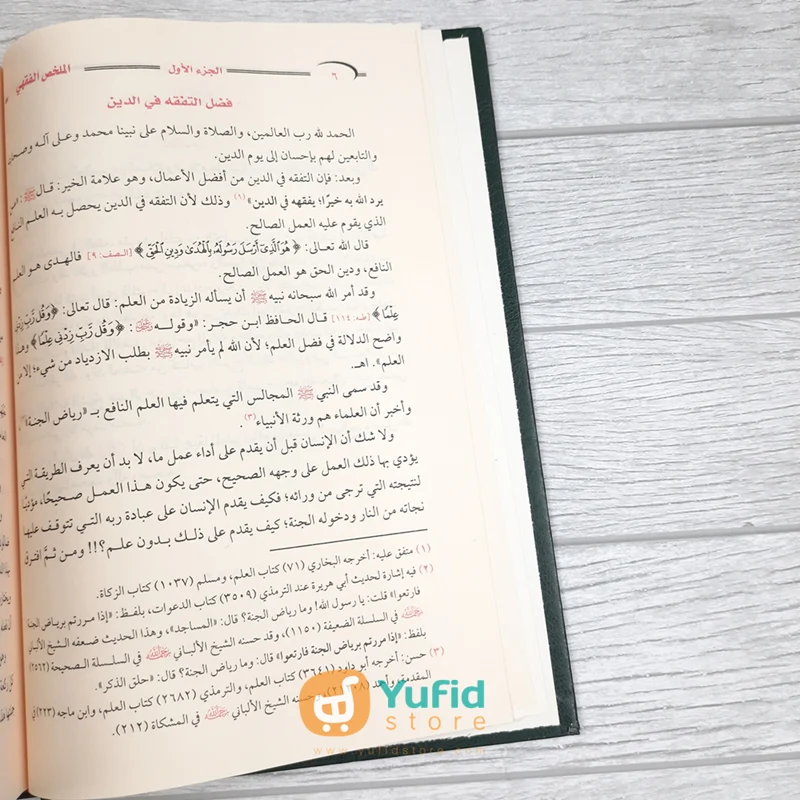 الملخص الفقهي
الجزء الأول
٦
فضل التفقه في الدين
الحمد لله رب العالمين، والصلاة والسلام على نبينا محمد وعلى آله
والتابعين لهم بإحسان إلى يوم الدين.
وبعد: فإن التفقه في الدين من أفضل الأعمال، وهو علامة الخير: قال ﷺ:
يرد الله به خيرًا؛ يفقهه في الدين»(١) وذلك لأن التفقه في الدين يحصل به العلم
الذي يقوم عليه العمل الصالح.
قال الله تعالى: ﴿هُوَ الَّذِي أَرْسَلَ رَسُولَهُ بِالْهُدَى وَدِينِ الْحَقِّ﴾ [الصف: ٩] فالهدى هو
النافع، ودين الحق هو العمل الصالح.
وقد أمر الله سبحانه نبيه ﷺ أن يسأله الزيادة من العلم: قال تعالى: ﴿وَقُل رَّبِّ زِدْنِي
عِلْمًا﴾ [طه: ١١٤] قال الحافظ ابن حجر: «وقوله : ﴿وَقُل رَّبِّ زِدْنِي عِلْمًا﴾
واضح الدلالة في فضل العلم؛ لأن الله لم يأمر نبيه ﷺ بطلب الازدياد من شيء؛ إلا من
العلم». اهـ.
وقد سمى النبي ﷺ المجالس التي يتعلم فيها العلم النافع بـ «رياض الجنة»
وأخبر أن العلماء هم ورثة الأنبياء(٣).
ولا شك أن الإنسان قبل أن يقدم على أداء عمل ما، لا بد أن يعرف الطريقة التي
يؤدي بها ذلك العمل على وجهه الصحيح، حتى يكون هذا العمل صحيحًا، مؤديًا
لنتيجته التي ترجى من ورائه؛ فكيف يقدم الإنسان على عبادة ربه التي تتوقف عليها
نجاته من النار ودخوله الجنة؛ كيف يقدم على ذلك بدون علم؟!! ومن ثمَّ افترق
(١) متفق عليه: أخرجه البخاري (٧١) كتاب العلم، ومسلم (١٠٣٧) كتاب الزكاة.
(٢) فيه إشارة لحديث أبي هريرة عند الترمذي (٣٥٠٩) كتاب الدعوات، بلفظ: «إذا مررتم برياض الجنة
فارتعوا» قلت: يا رسول الله! وما رياض الجنة؟ قال: «المساجد»، وهذا الحديث ضعفه الشيخ الألباني
في السلسلة الضعيفة (١١٥٠)، وقد حسنه الشيخ الألباني في السلسلة الصحيحة (٢٥٦٢)
بلفظ: «إذا مررتم برياض الجنة فارتعوا» قال: وما رياض الجنة؟ قال: «حلق الذكر».
(٣) حسن: أخرجه أبو داود (٣٦٤١) كتاب العلم، والترمذي (٢٦٨٢) كتاب العلم، وابن ماجه (٢٢٣) في
المقدمة، وأحمد حسنه الشيخ الألباني في المشكاة (٢١٢).
Yufid
store
www.yufidstore.com